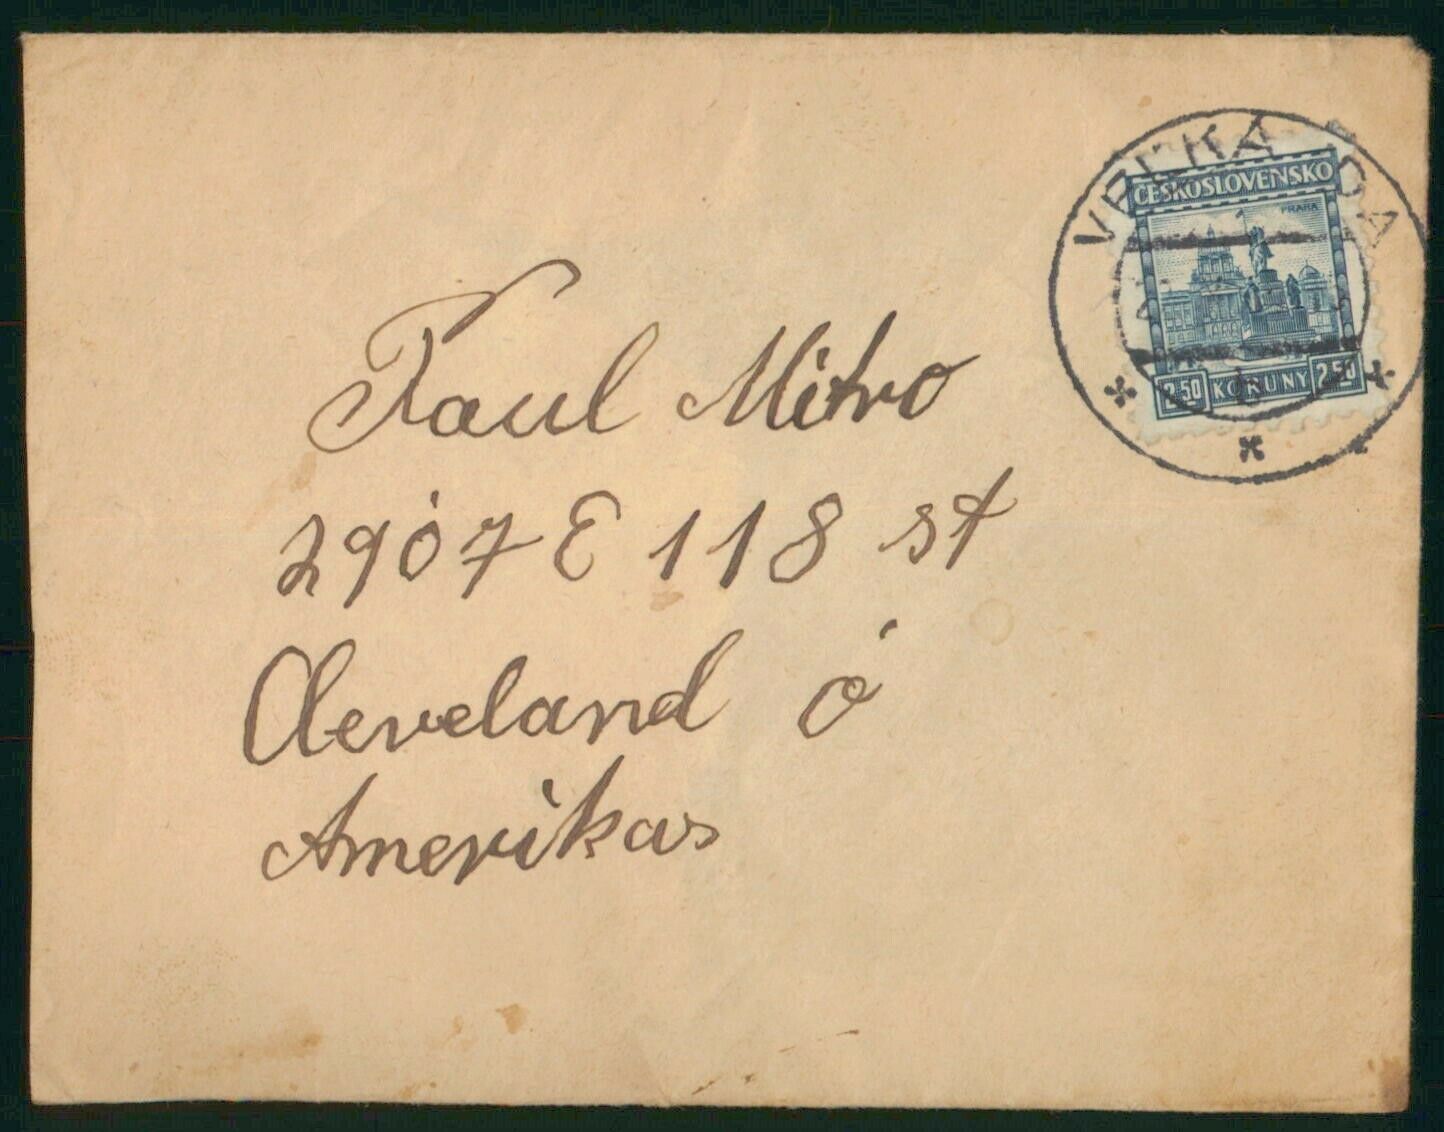 VEĽKÁ
ČESKOSLOVENSKO
PRAHA
2.50 KORUNY 2.50
Paul Mitro
2907 E 118 st
Cleveland O
Amerikas